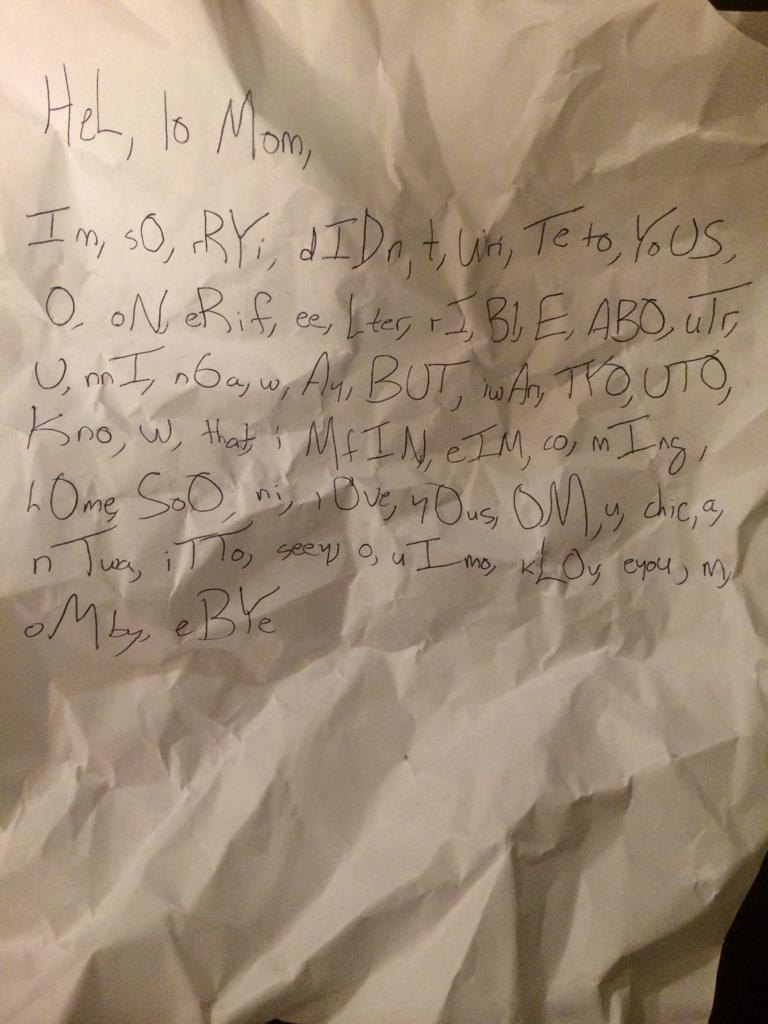 HeL, lo Mom,
Im, sO, rRYi, dIDn, t, Wri, Te to, YoUS,
O, oN, eRif, ee, Lter, rI, Bl, E, ABO, uTr,
U, nnI, nGa, w, Ay, BUT, iwAn, TYO, UTO,
Kno, W, that, i MfIN, eIM, co, mIng,
hOme, SoO, ni, lOve, yOus, OM, u, chic, a,
nTwa, iTTo, seey o, uImo, kLOv, eyou, m,
oMby, eBYe